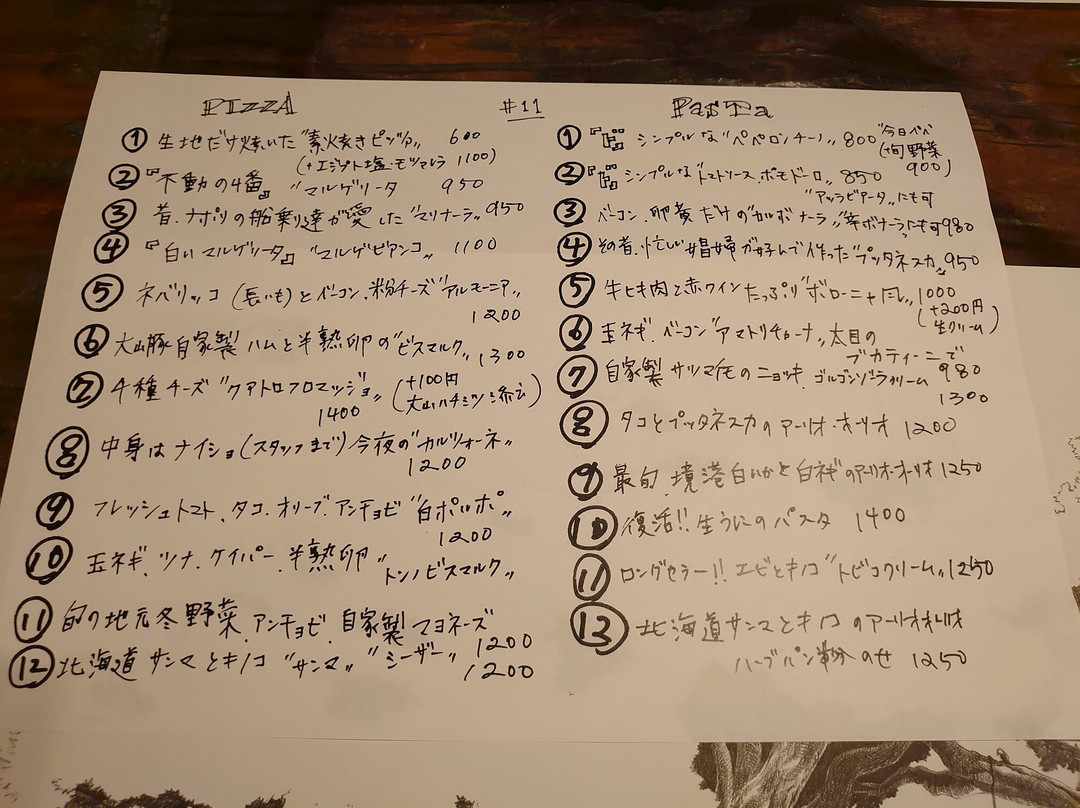 PIZZA
① 生地だけ焼いた"素焼きピッツァ" 600
(+エジプト塩・モッツァレラ 1100)
② 『不動の4番』"マルゲリータ 950
③ 昔、ナポリの船乗り達が愛した"マリナーラ" 950
④ 『白いマルゲリータ』"マルゲビアンコ" 1100
⑤ ネバリッコ(長いも)とベーコン、粉チーズ"アルモーニア"
1200
⑥ 大山豚自家製ハムと半熟卵の"ビスマルク" 1300
⑦ 4種チーズ"クアトロフロマッジョ" (+100円
1400 大山ハチミツ添え)
⑧ 中身はナイショ(スタッフまで)今夜の"カルツォーネ"
1200
⑨ フレッシュトマト、タコ、オリーブ、アンチョビ"白ポルポ"
1200
⑩ 玉ネギ、ツナ、ケイパー、半熟卵"
トンノビスマルク"
⑪ 旬の地元冬野菜、アンチョビ、自家製マヨネーズ
1200
⑫ 北海道サンマとキノコ"サンマ" "シーザー" 1200
#11
PasTa
① シンプルな"ペペロンチーノ" 800 "今日ペペ
(+旬野菜
900)
② シンプルなトマトソース、ポモドーロ" 850
"アラビアータ"にも可
③ ベーコン、卵黄だけの"カルボナーラ" ボナーラにも可 980
④ その昔、忙しい娼婦が好んで作った"プッタネスカ" 950
⑤ 牛ヒキ肉と赤ワインたっぷり"ボローニャ風" 1000
(+200円
生クリーム)
⑥ 玉ネギ、ベーコン"アマトリチャーナ"太目の
ブカティーニで
980
⑦ 自家製サツマイモのニョッキ、ゴルゴンゾーラクリーム
1300
⑧ タコとプッタネスカのアーリオ・オーリオ 1200
⑨ 最旬、境港白いかと白ネギのアーリオ・オーリオ 1250
⑩ 復活!! 生うにのパスタ 1400
⑪ ロングセラー!! エビとキノコ"トビコクリーム" 1250
⑬ 北海道サンマとキノコのアーリオオーリオ
ハーブパン粉のせ 1250